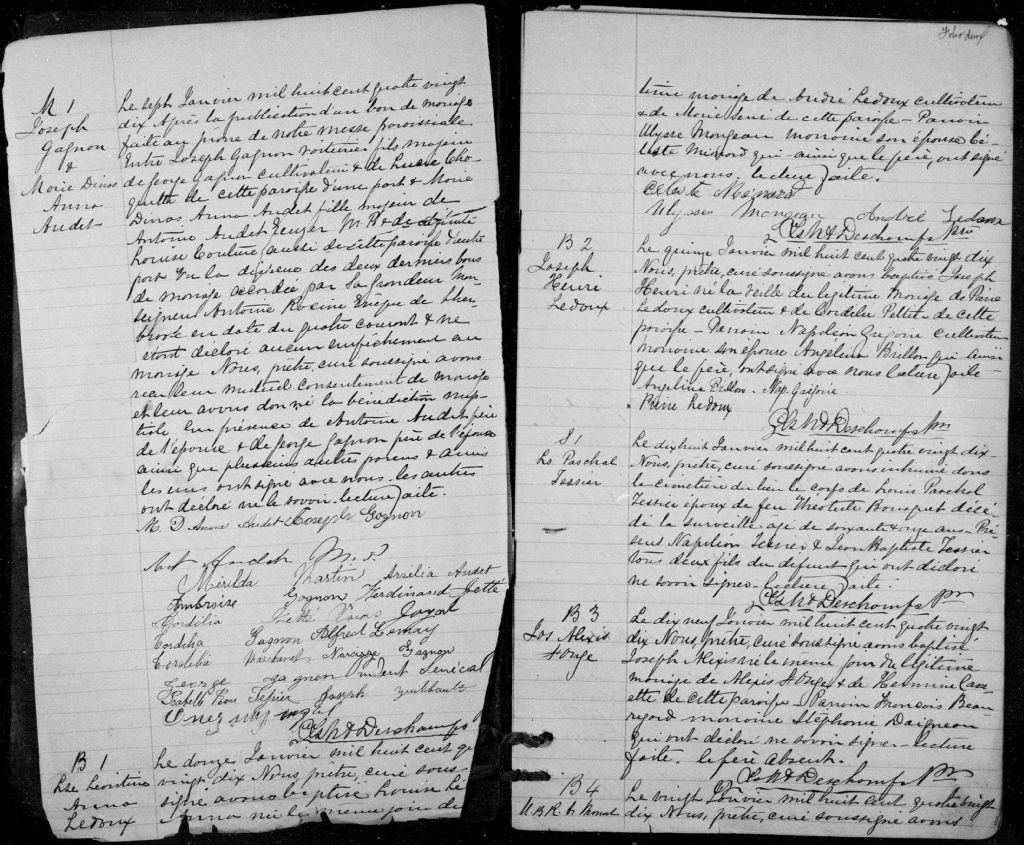 M 1
Joseph
Gagnon
&
Marie Dinas
Anna
Audet
Le sept Janvier mil huit cent quatre vingt
dix Après la publication d'un ban de mariage
faite au prône de notre messe paroissiale
Entre Joseph Gagnon voiturier fils majeur
de George Gagnon cultivateur & de Lucie Cho-
quette de cette paroisse d'une part & Marie
Dinas Anna Audet fille majeure de
Antoine Audet Ecuyer M.P. & de défunte
Louise Couture aussi de cette paroisse d'autre
part Vu la dispense des deux derniers bans
de mariage accordée par Sa Grandeur Mon
seigneur Antoine Racine Evêque de Sher
brooke en date du quatre courant & ne
s'étant déclaré aucun empêchement au
mariage Nous, prêtre, curé soussigné avons
reçu leur mutuel consentement de mariage
et leur avons donné la bénédiction nup-
tiale En présence de Antoine Audet père
de l'épouse & de George Gagnon père de l'époux
ainsi que plusieurs autres parents & amis
les uns ont signé avec nous les autres
ont déclaré ne le savoir. lecture faite.
M. D Anna Audet Joseph Gagnon
Ant Audet M.P.
Merilda Martin Arsélia Audet
Ambroise Gagnon Ferdinand Jetté
Cordélia Jetté Joyal
Cordélia Gagnon Alfred Lemay
Cordélia Marchand Narcisse Gagnon
George Gagnon Prudent Sénécal
Joseph Guilbault
Chs H. Deschamps
B 1
Lse Léontine
Anna
Ledoux
Le douze Janvier mil huit cent qu
vingt dix Nous, prêtre, curé sous-
signé avons baptisé Louise Lé
Anna née le même jour du
Folio deux
time mariage de André Ledoux cultivateur
& de Marie Sené de cette paroisse - Parrain
Ulysse Mongeau marraine son épouse Cé-
leste Ménard qui - ainsi que le père, ont signé
avec nous. lecture faite.
Celeste Ménard
Ulysse Mongeau André Ledoux
Chs H. Deschamps Ptre
B 2
Joseph
Henri
Ledoux
Le quinze Janvier mil huit cent quatre vingt dix
Nous, prêtre, curé soussigné avons baptisé Joseph
Henri né la veille du légitime mariage de Pierre
Ledoux cultivateur & de Cordélie Pelletier de cette
paroisse - Parrain Napoléon Grégoire cultivateur
marraine son épouse Angelina Brillon qui ainsi
que le père, ont signé avec nous lecture faite
Angelina Brillon. Nap. Grégoire
Pierre Ledoux
Chs H. Deschamps Ptre
S 1
Ls Paschal
Tessier
Le dix huit Janvier mil huit cent quatre vingt dix-
Nous, prêtre, curé soussigné avons inhumé dans
le cimetière du lieu le corps de Louis Paschal
Tessier époux de feu Théotiste Bousquet décé-
dé la surveille agé de soixante & onze ans. Pré
sents Napoléon Tessier & Jean Baptiste Tessier
tous deux fils du défunt qui ont déclaré
ne savoir signer - lecture faite.
Chs H. Deschamps Ptre
B 3
Jos Alexis
St Onge
Le dix neuf Janvier mil huit cent quatre vingt
dix Nous, prêtre, curé soussigné avons baptisé
Joseph Alexis né le même jour du légitime
mariage de Alexis St Onge & de Hermine Caou
ette de cette paroisse Parrain François Beau
regard marraine Stéphanie Daigneau
qui ont déclaré ne savoir signer - lecture
faite. le père absent.
Chs H. Deschamps Ptre
B 4
M B R
Le vingt Janvier mil huit cent quatre vingt
dix Nous, prêtre, curé soussigné avons